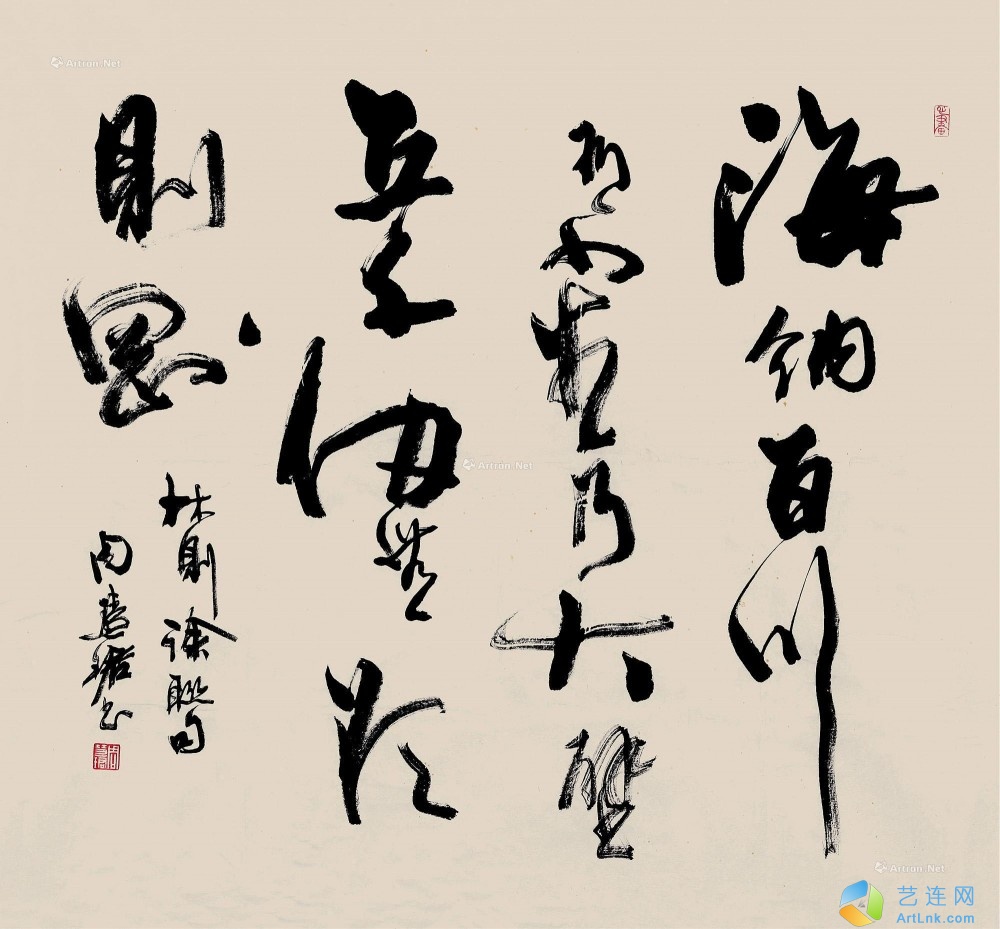 海納百川
有容乃大壁
立千仞無欲
則剛
林則徐聯句
周慧珺书
Artron.Net
Artron.Net
Artron.Net
艺连网
ArtLnk.com